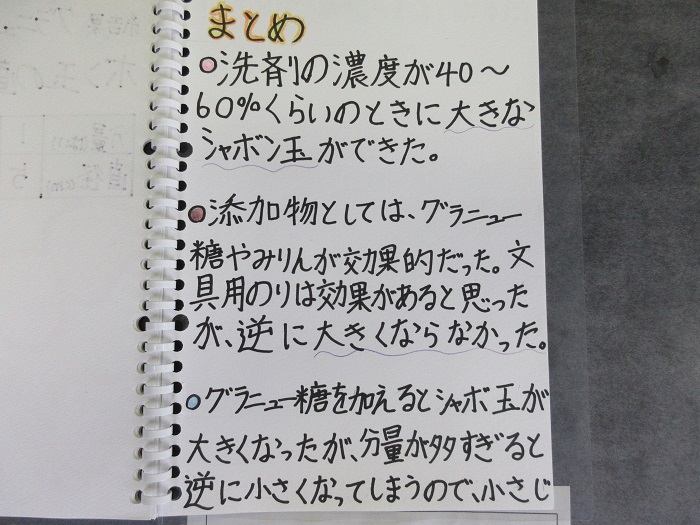 まとめ
○洗剤の濃度が40～
60%くらいのときに大きな
シャボン玉ができた。
●添加物としては、グラニュー
糖やみりんが効果的だった。文
具用のりは効果があると思った
が、逆に大きくならなかった。
○グラニュー糖を加えるとシャボ玉が
大きくなったが、分量が多すぎると
逆に小さくなってしまうので、小さじ